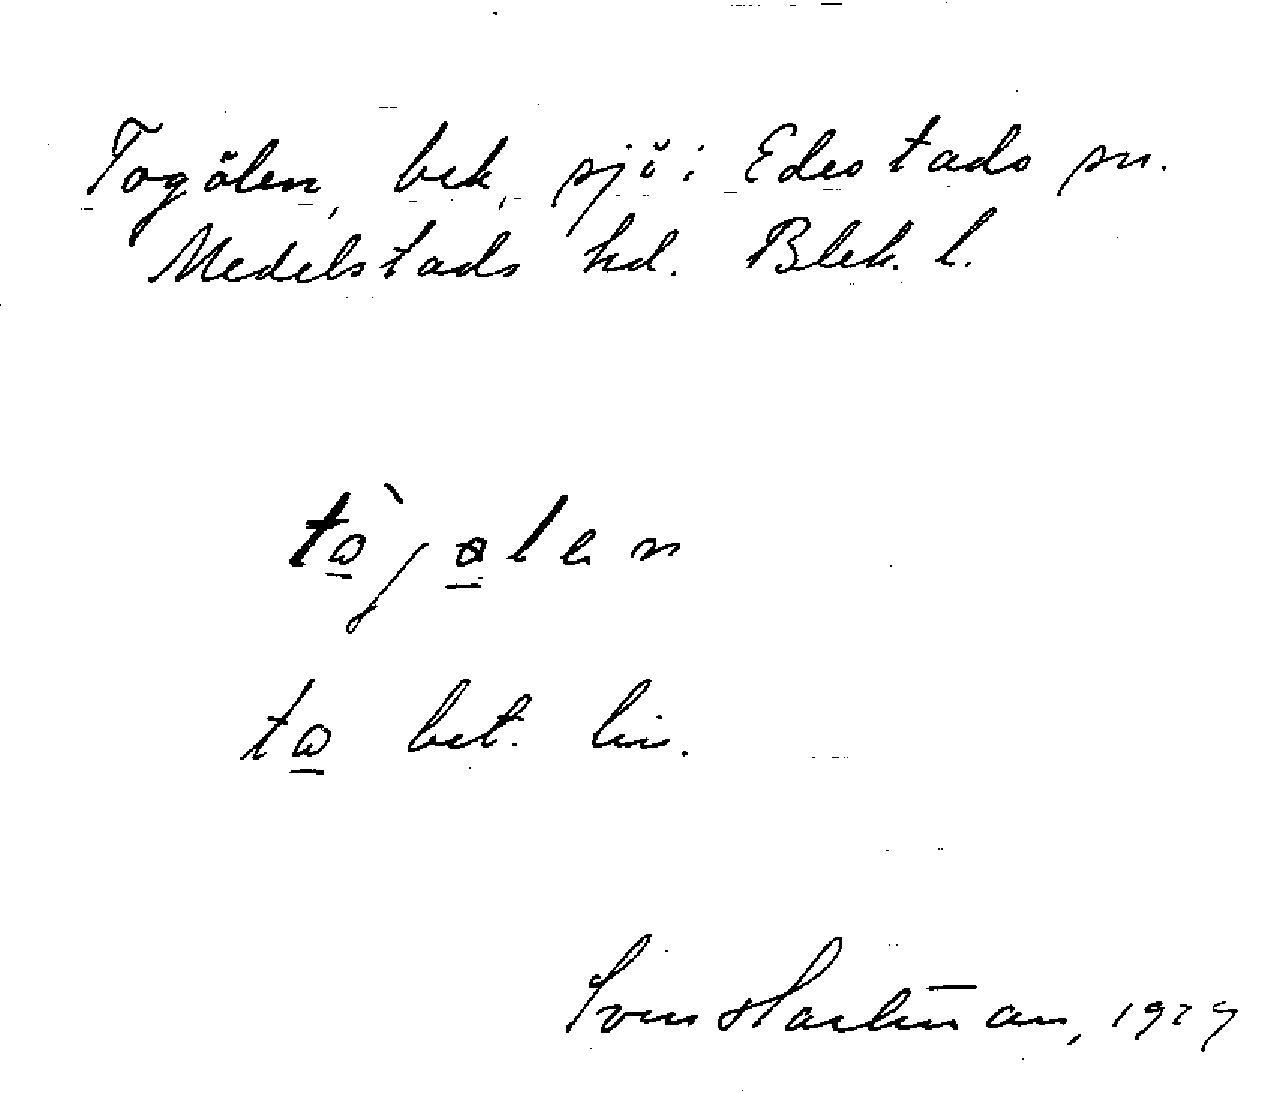 Togölen, bek, sjö i Edestads sn.
Medelstads hd. Blek. l.
to bet. lin.
Sven Hartman, 1927